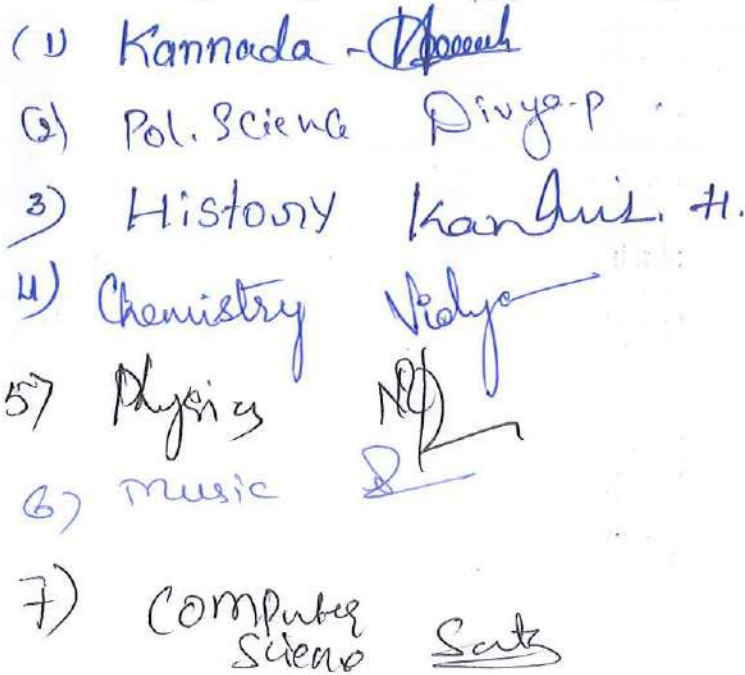 (1) Kannada -
(2) Pol. Science Divya.p
3) History H.
4) Chemistry Vidya
5) Physics
6) music
7) Computer
Science